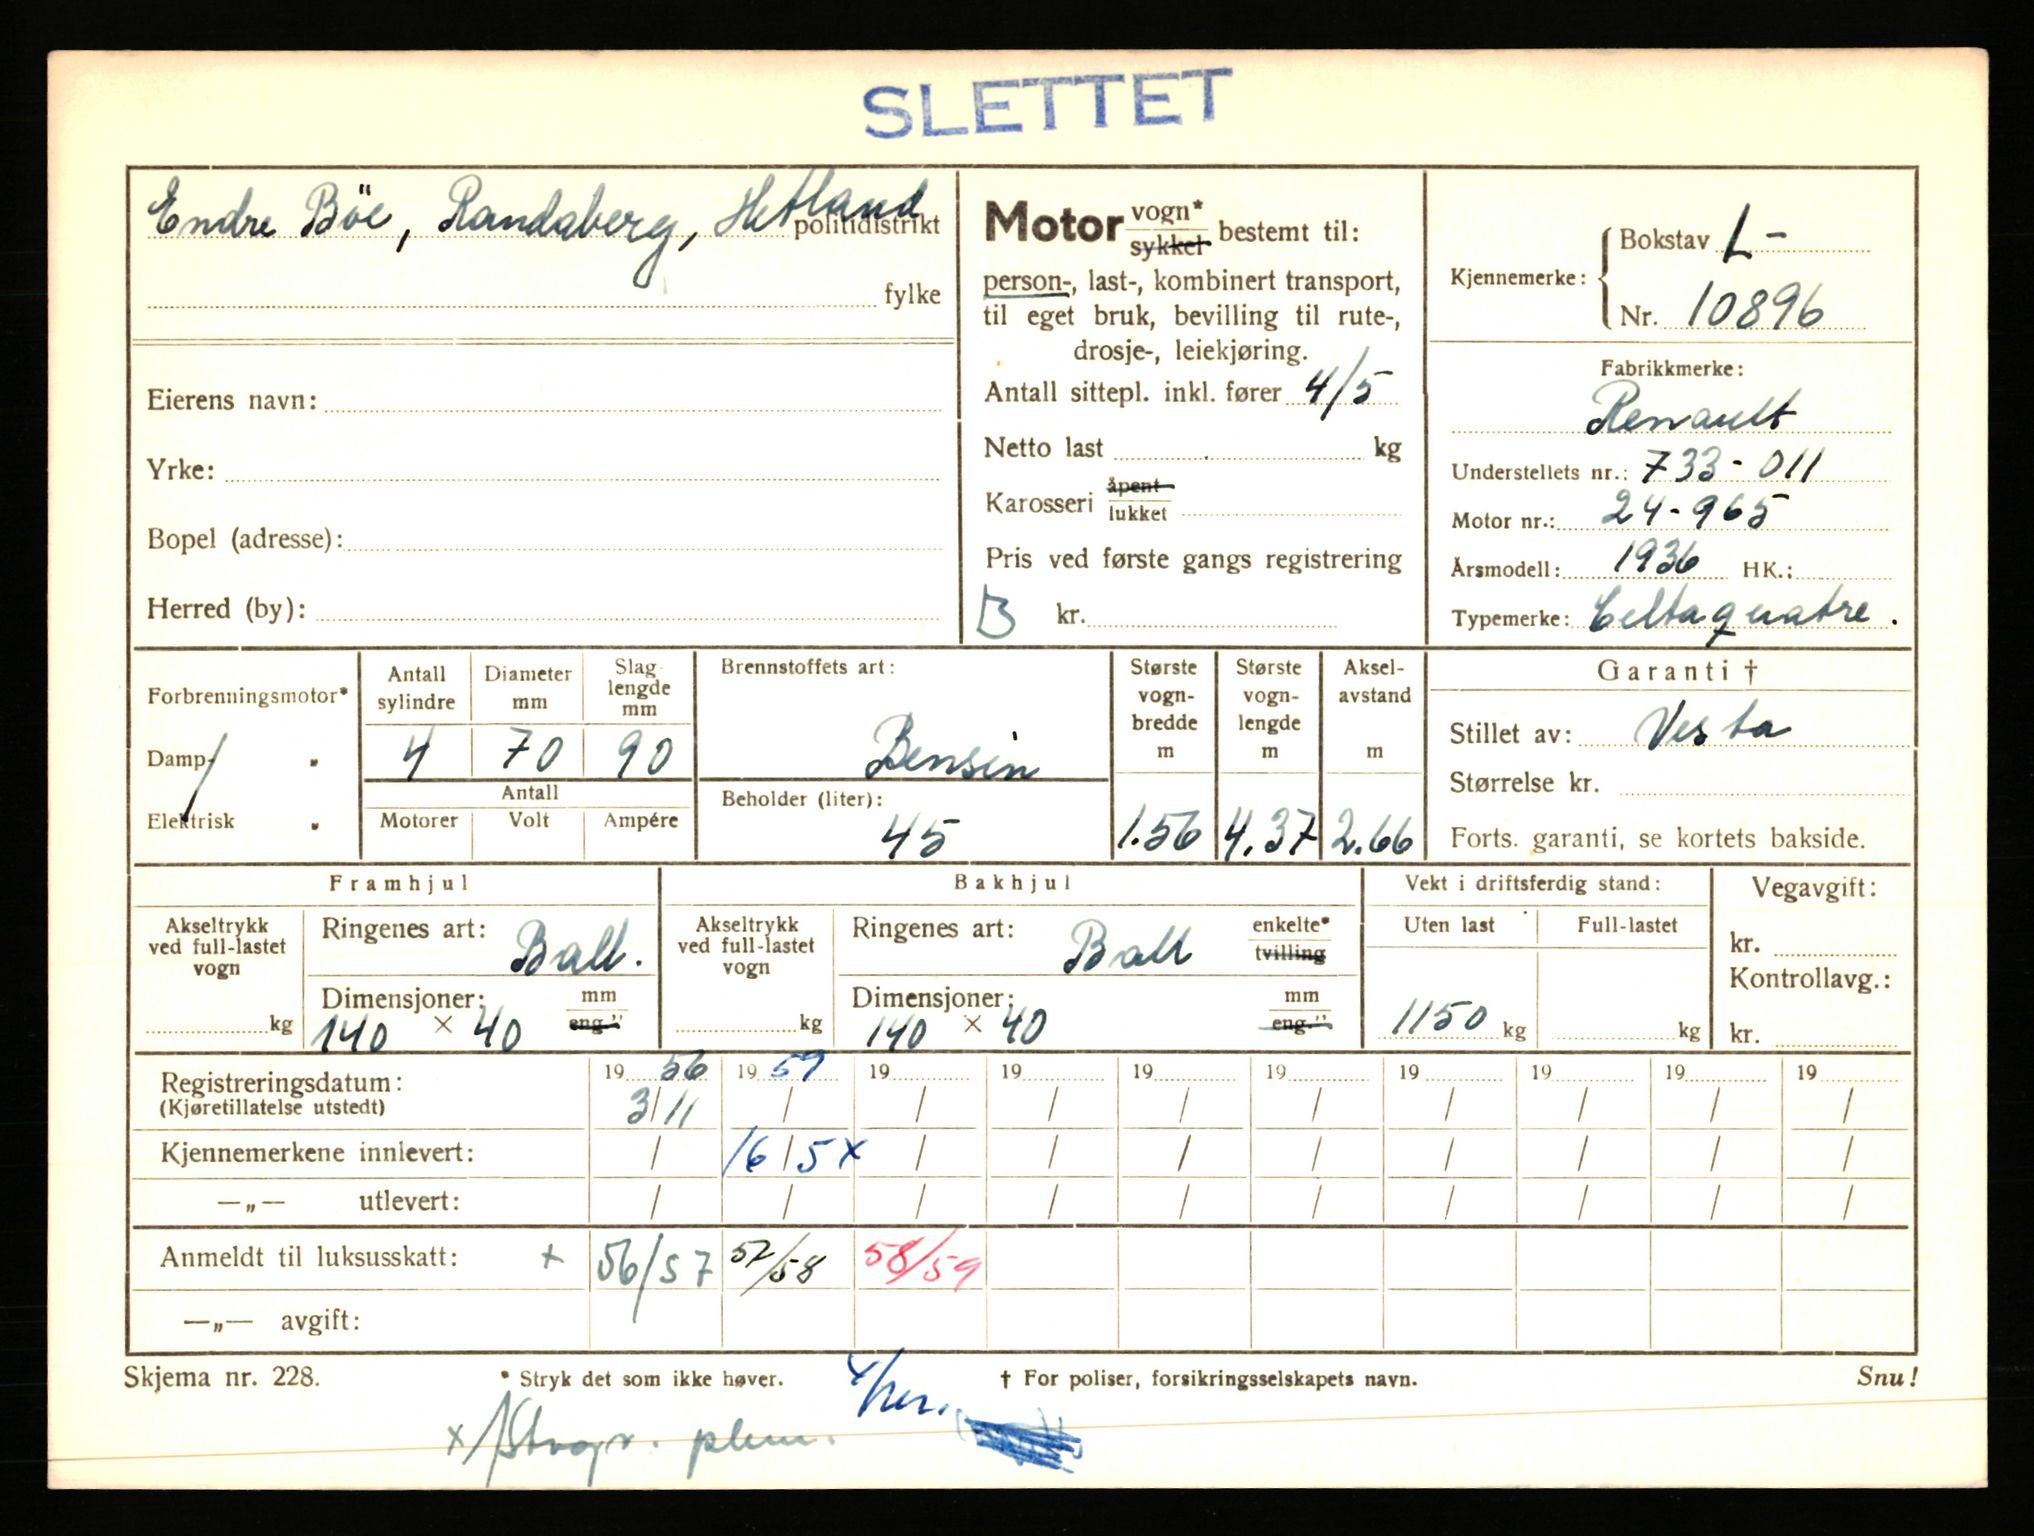 SLETTET
Endre Böe, Randaberg, Hetland politidistrikt
fylke
Eierens navn:
Yrke:
Bopel (adresse):
Herred (by):
Motor vogn* sykkel bestemt til:
person-, last-, kombinert transport,
til eget bruk, bevilling til rute-,
drosje-, leiekjøring.
Antall sittepl. inkl. fører 4/5
Netto last kg
Karosseri åpent lukket
Pris ved første gangs registrering
B kr.
Kjennemerke: Bokstav L-
Nr. 10896
Fabrikkmerke:
Renault
Understellets nr.: 733-011
Motor nr.: 24-965
Årsmodell: 1936 HK.:
Typemerke: Celtaquatre.
Forbrenningsmotor*
Damp- "
Elektrisk "
Antall sylindre
Diameter mm
Slag lengde mm
4 70 90
Antall
Motorer Volt Ampére
Brennstoffets art:
Bensin
Beholder (liter):
45
Største vogn-bredde m
1.56
Største vogn-lengde m
4.37
Aksel-avstand m
2.66
Garanti †
Stillet av: Vesta
Størrelse kr.
Forts. garanti, se kortets bakside.
Framhjul
Akseltrykk ved full-lastet vogn
kg
Ringenes art: Ball.
Dimensjoner: mm eng."
140 × 40
Bakhjul
Akseltrykk ved full-lastet vogn
kg
Ringenes art: Ball enkelte* tvilling
Dimensjoner: mm eng."
140 × 40
Vekt i driftsferdig stand:
Uten last Full-lastet
1150 kg kg
Vegavgift:
kr.
Kontrollavg.:
kr.
Registreringsdatum: 19 56 19 59 19 19 19 19 19 19 19 19
(Kjøretillatelse utstedt) 3/11 / / / / / / / / /
Kjennemerkene innlevert: / 16/5 x / / / / / / / /
—„— utlevert: / / / / / / / / / /
Anmeldt til luksusskatt: x 56/57 57/58 58/59
—„— avgift:
Skjema nr. 228. * Stryk det som ikke høver. † For poliser, forsikringsselskapets navn. Snu!